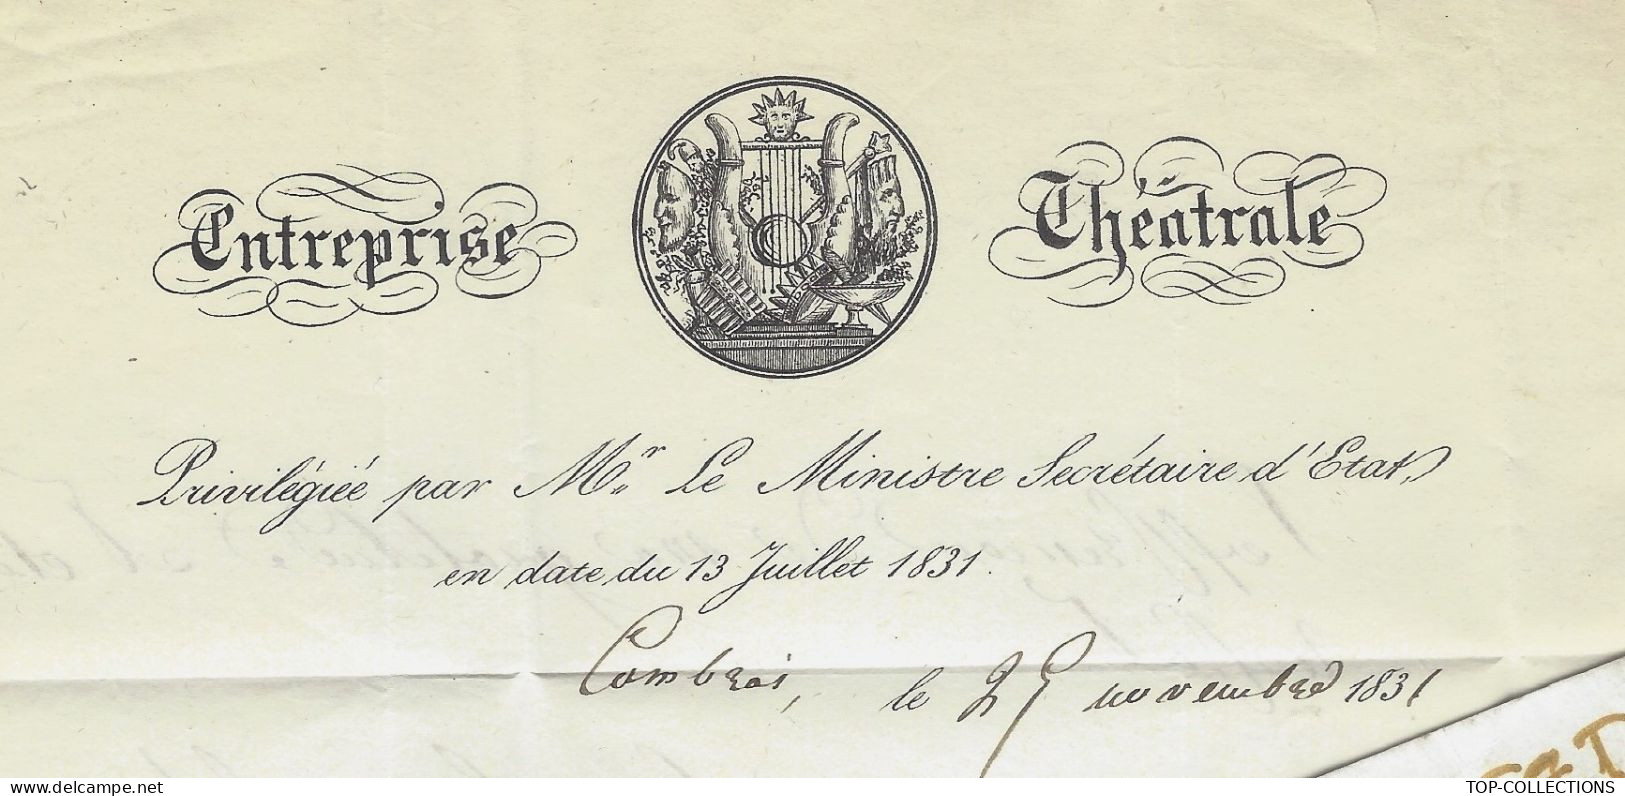 Entreprise Théâtrale
Privilégiée par Mr. Le Ministre Secrétaire d'Etat,
en date du 13 Juillet 1831.
Cambrai, le 25 novembre 1831
TOP-COLLECTIONS